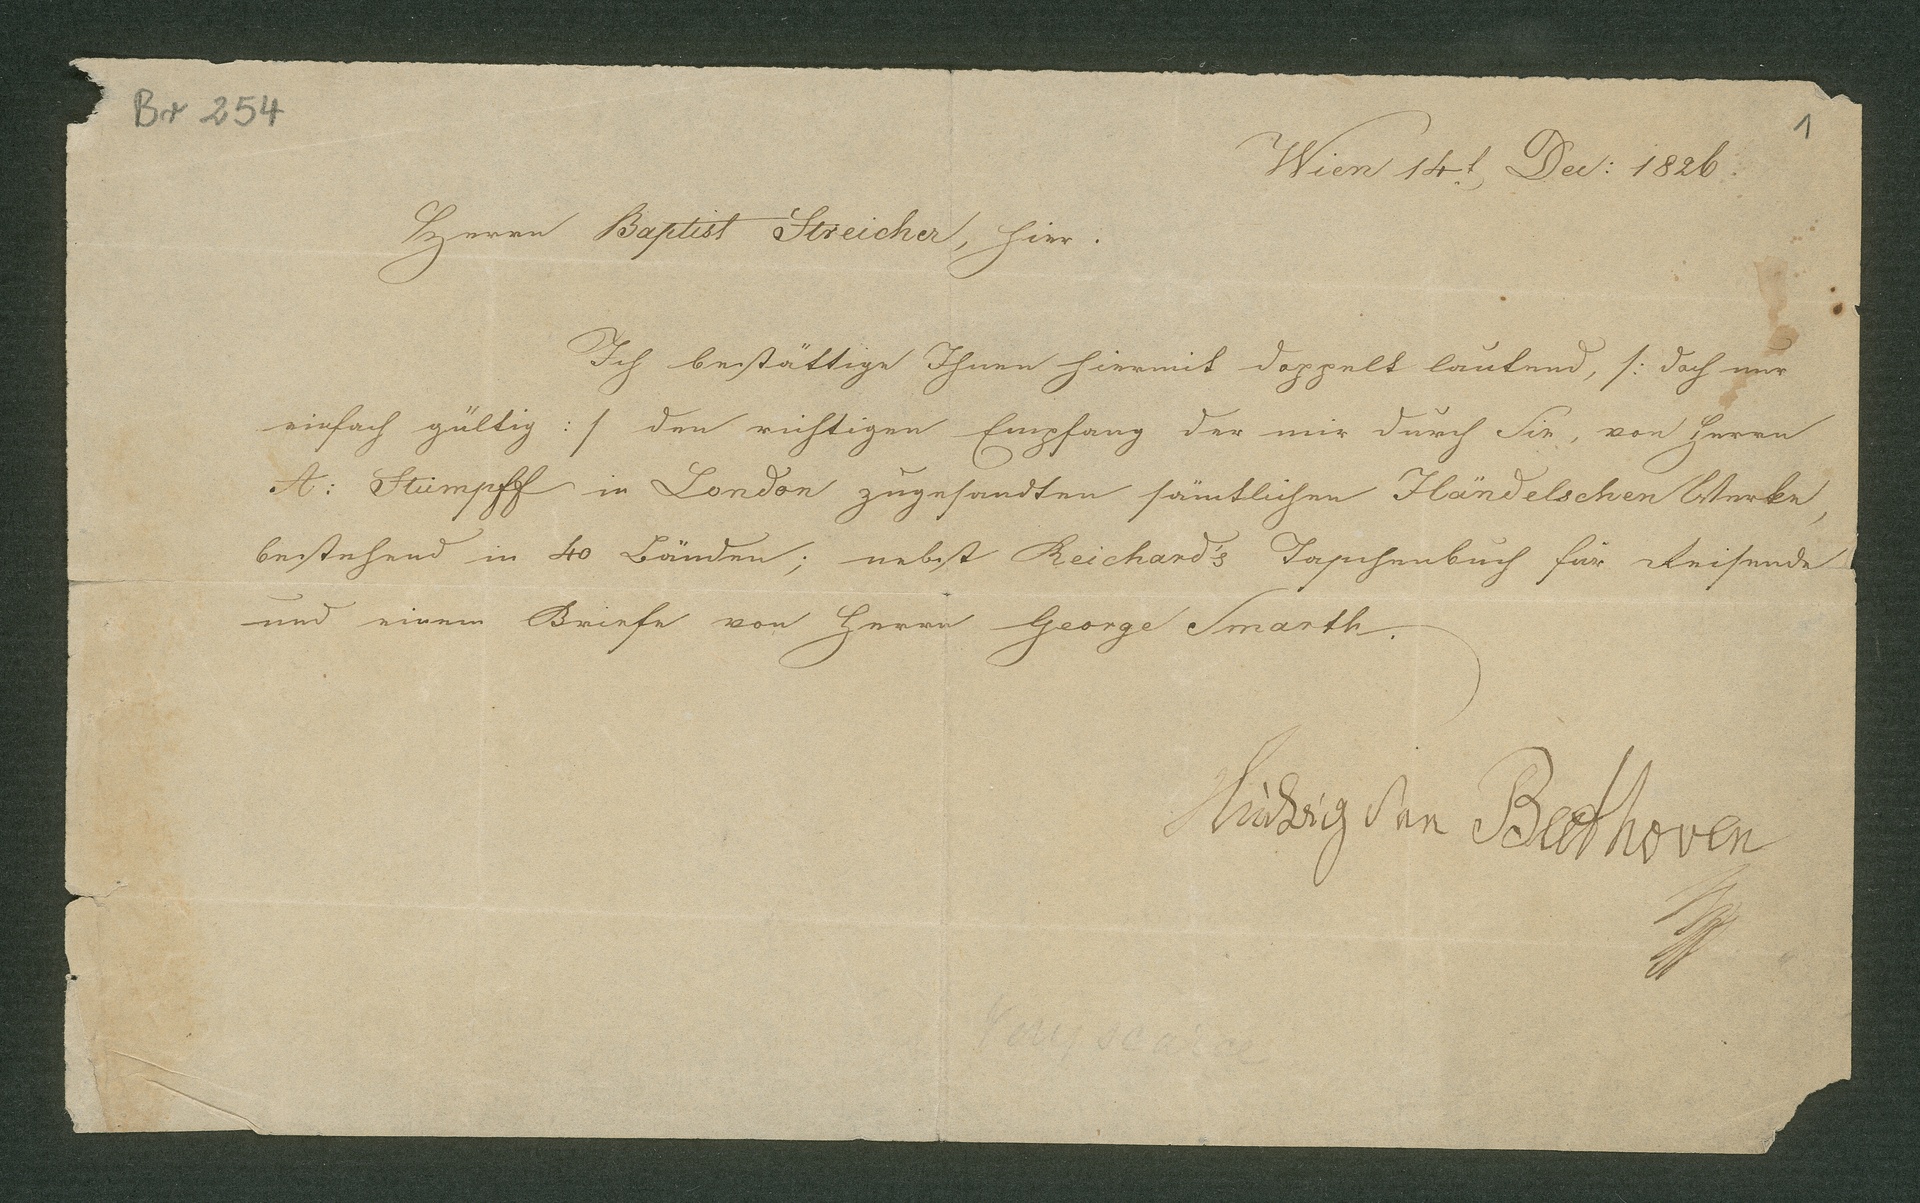 Br 254
1
Wien 14t Dec: 1826.
Herrn Baptist Streicher, hier.
Ich bestättige Ihnen hiermit doppelt lautend, /: doch nur
einfach gültig :/ den richtigen Empfang der mir durch Sie, von Herrn
A: Stumpff in London zugesandten sämtlichen Händelschen Werke,
bestehend in 40 Bänden; nebst Reichard's Taschenbuch für Reisende
und einem Briefe von Herrn George Smarth.
Ludwig van Beethoven
Very scarce